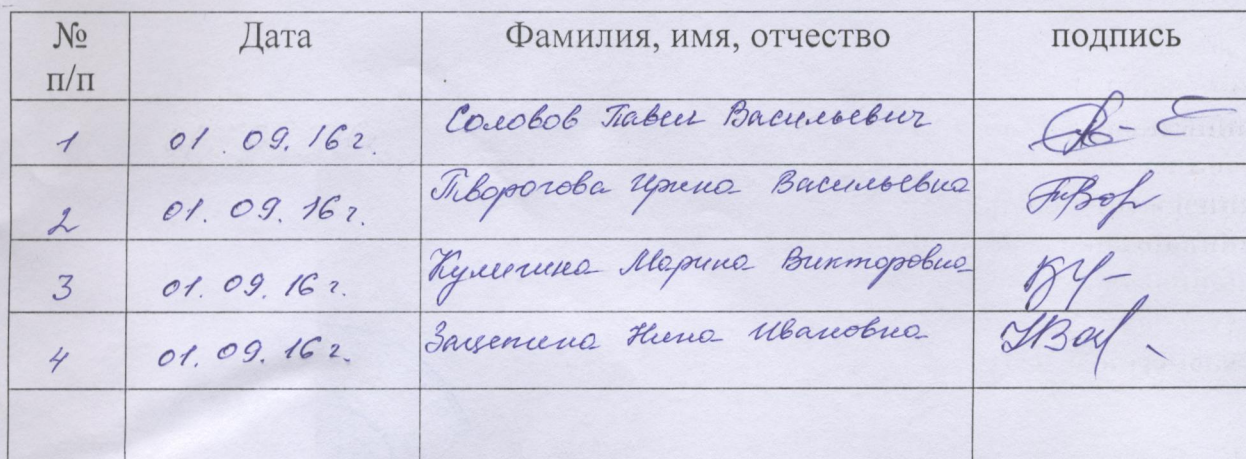 № п/п Дата Фамилия, имя, отчество подпись
1 01.09.16г. Соловов Павел Васильевич
2 01.09.16г. Творогова Ирина Васильевна Твор
3 01.09.16г. Кулигина Марина Викторовна
4 01.09.16г. Защепина Нина Ивановна